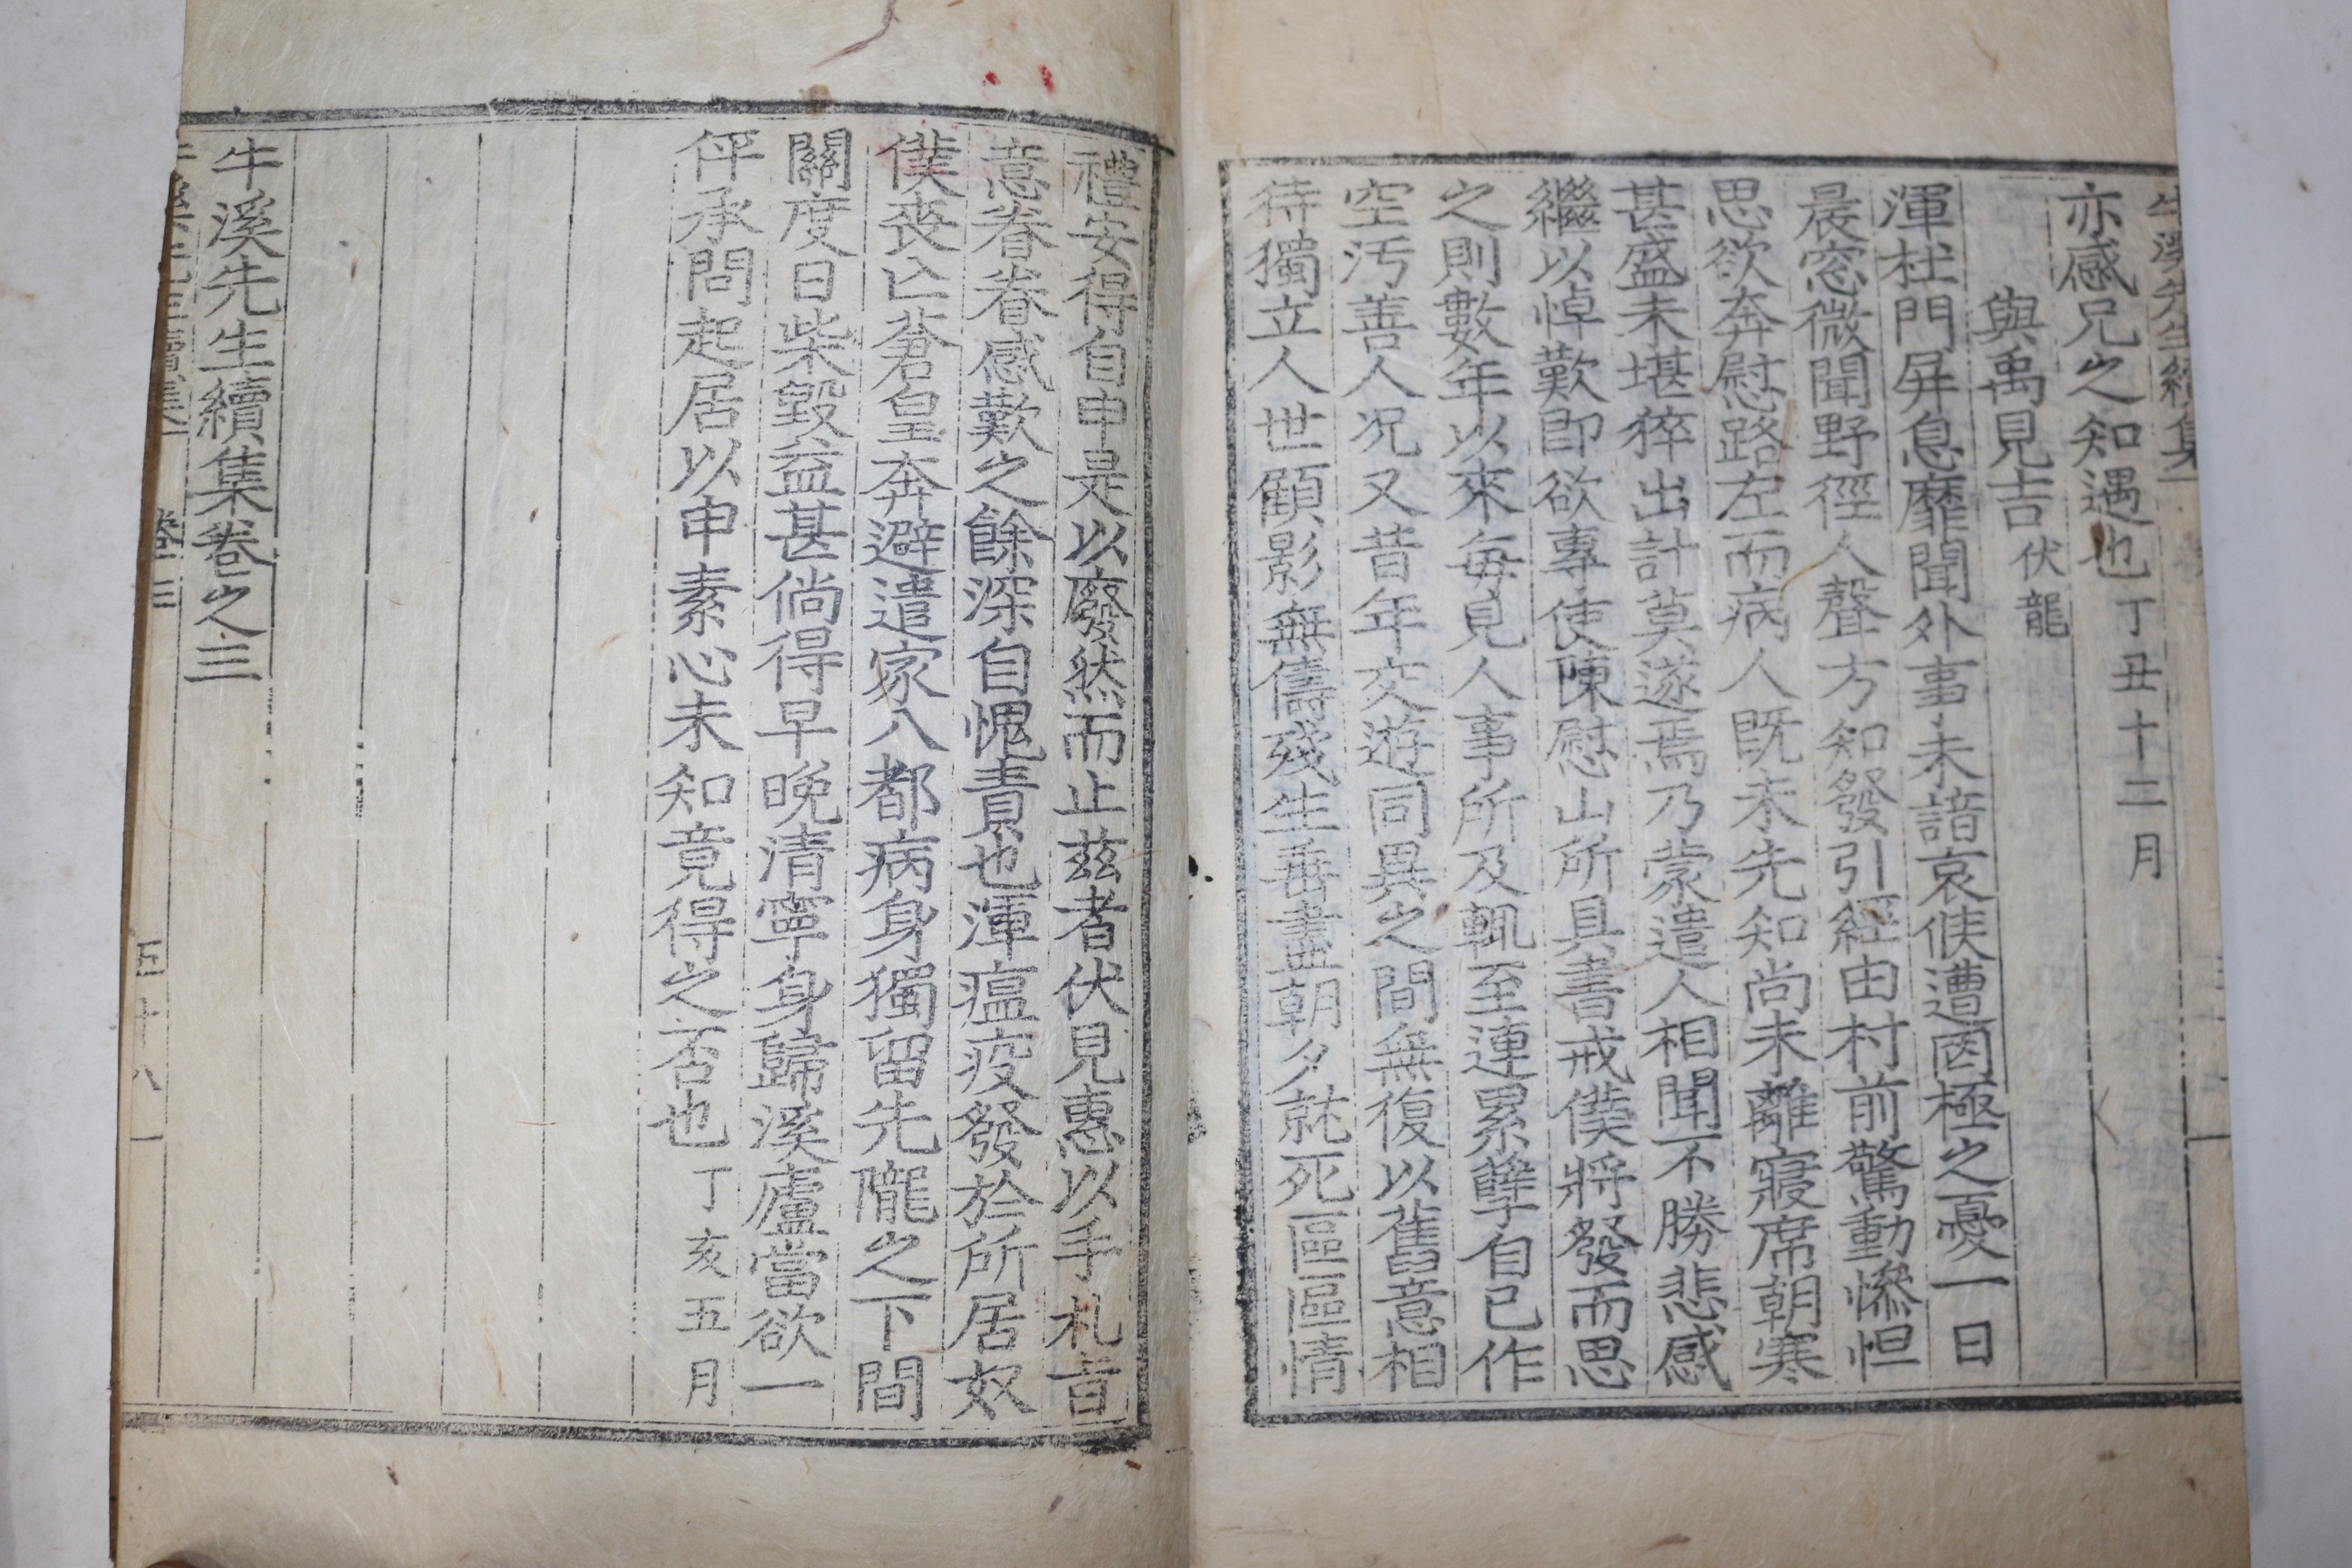 牛溪先生續集
亦感兄之知遇也丁丑十二月
與禹見吉伏龍
渾杜門屏息靡聞外事未諳哀候遭罔極之憂一日
晨窓微聞野徑人聲方知發引經由村前驚動慘怛
思欲奔慰路左而病人旣未先知尚未離寢席朝寒
甚盛未堪猝出計莫遂焉乃蒙遣人相聞不勝悲感
繼以悼歎即欲專使陳慰山所具書戒僕將發而思
之則數年以來每見人事所及輒至連累孼自己作
空汚善人况又昔年交遊同異之間無復以舊意相
待獨立人世顧影無儔殘生垂盡朝夕就死區區情
禮安得自申是以廢然而止玆者伏見惠以手札音
意眷眷感歎之餘深自愧責也渾瘟疫發於所居奴
僕丧亡蒼皇奔避遣家八都病身獨留先隴之下間
關度日柴毀益甚倘得早晩清寧身歸溪廬當欲一
伻承問起居以申素心未知竟得之否也丁亥五月
牛溪先生續集卷之三
牛溪先生續集 卷三 五十八